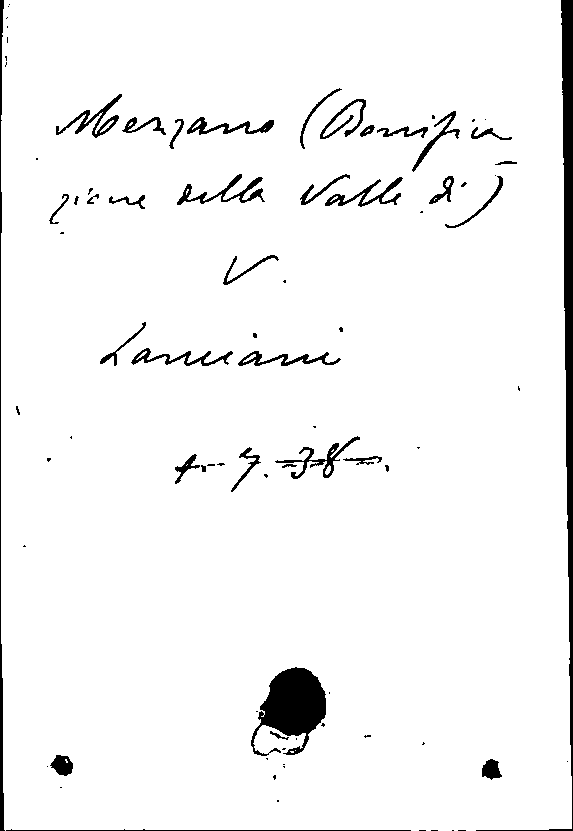 Menzano (Bonifica
zione della Valle di)
V.
Lanciani
t. 7. 38.